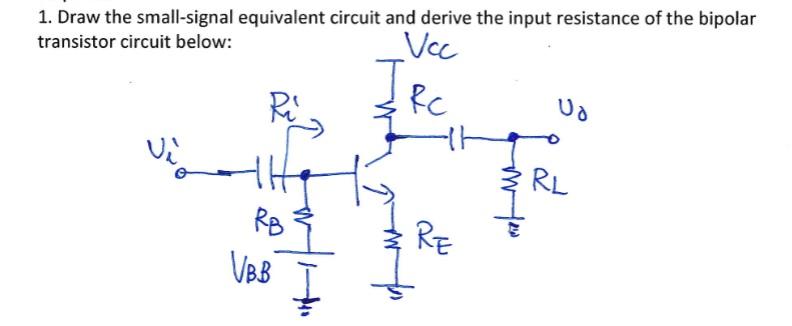 1. Draw the small-signal equivalent circuit and derive the input resistance of the bipolar
transistor circuit below:
Vcc
Rc
Ri
Uo
Ui
RL
RB
RE
VBB